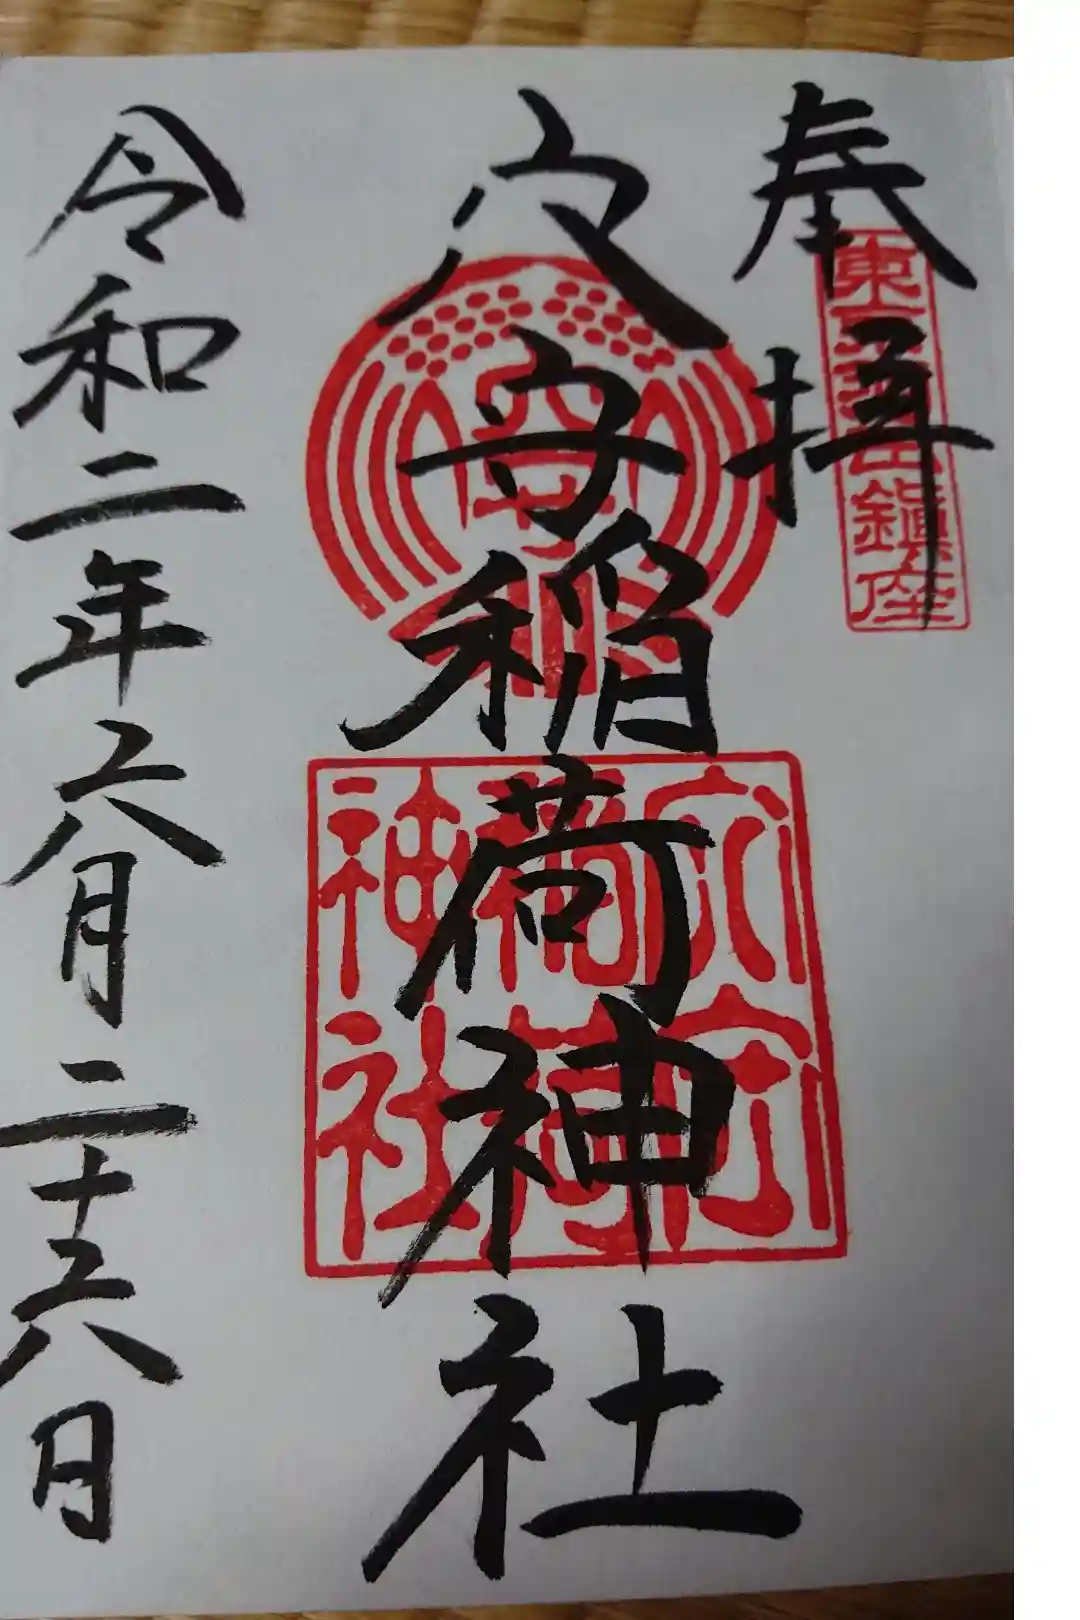 奉拝
東京羽田鎭座
穴守稲荷神社
穴守
穴守稲荷神社
令和二年六月二十六日